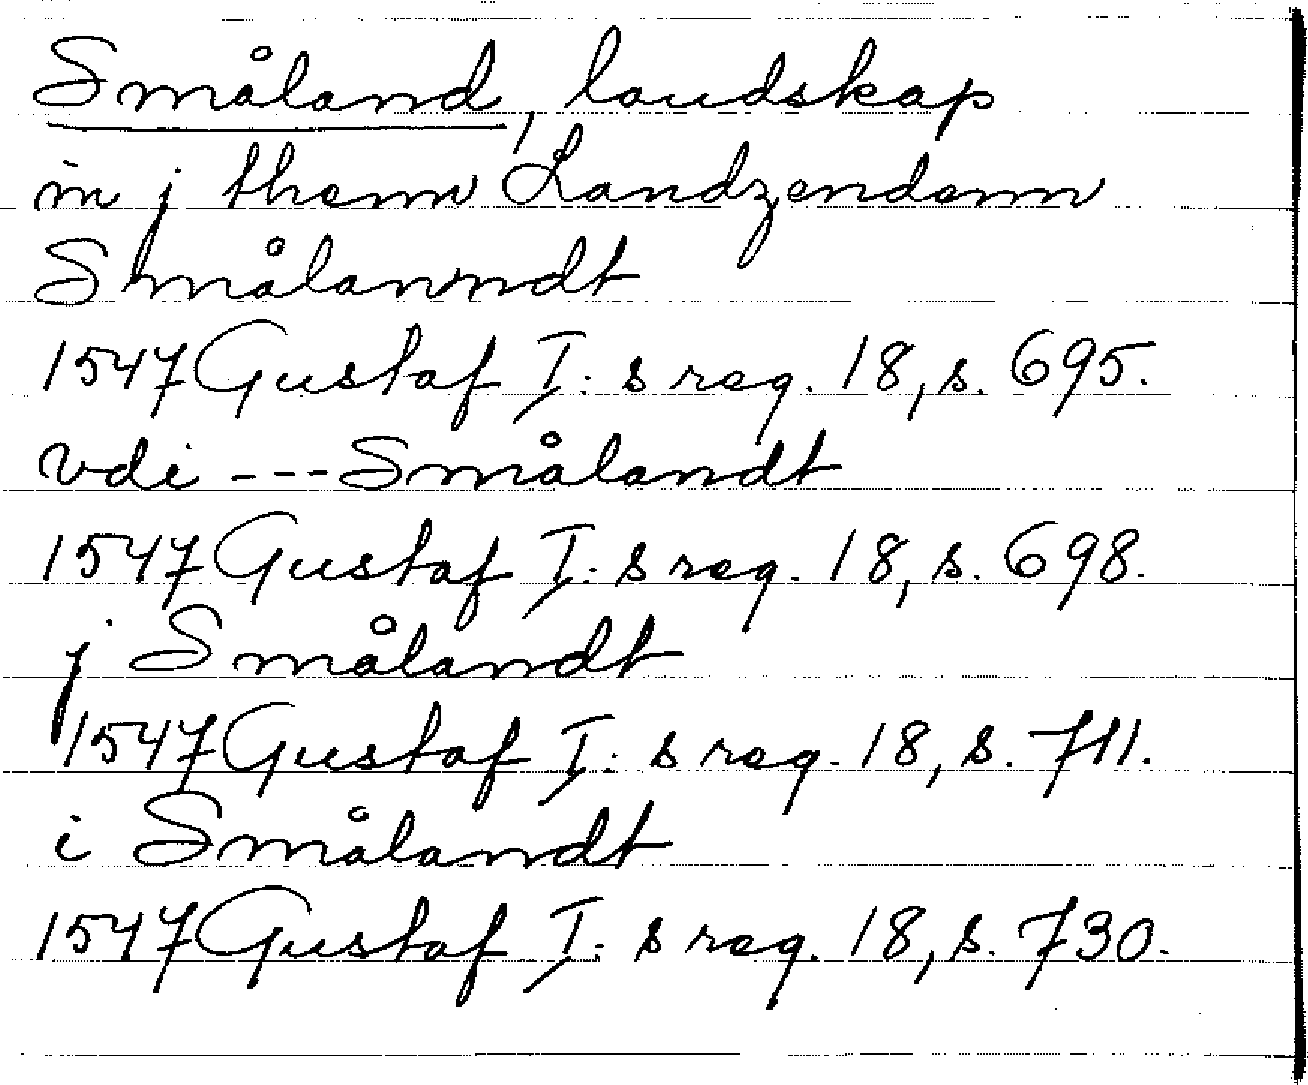 Småland, landskap
in j them Landzendenn
Smålanndt
1547 Gustaf I:s reg. 18, s. 695.
vdi --- Smålandt
1547 Gustaf I:s reg. 18, s. 698.
j Smålandt
1547 Gustaf I:s reg. 18, s. 711.
i Smålandt
1547 Gustaf I:s reg. 18, s. 730.